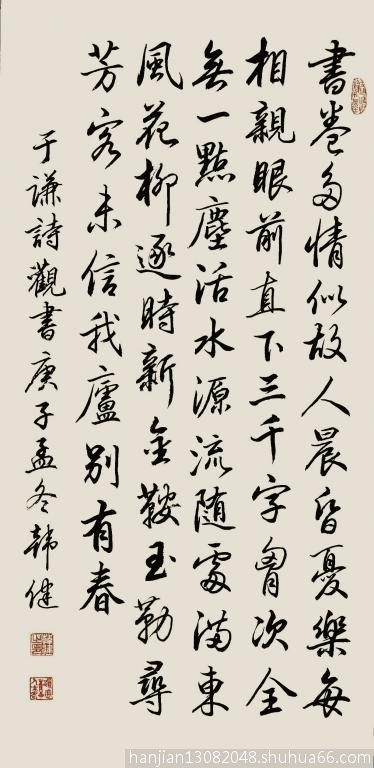 書卷多情似故人晨昏憂樂每
相親眼前直下三千字胷次全
無一點塵活水源流隨處滿東
風花柳逐時新金鞍玉勒尋
芳客未信我廬別有春
于謙詩觀書庚子孟冬韓健
hanjian13082048.shuhua66.com